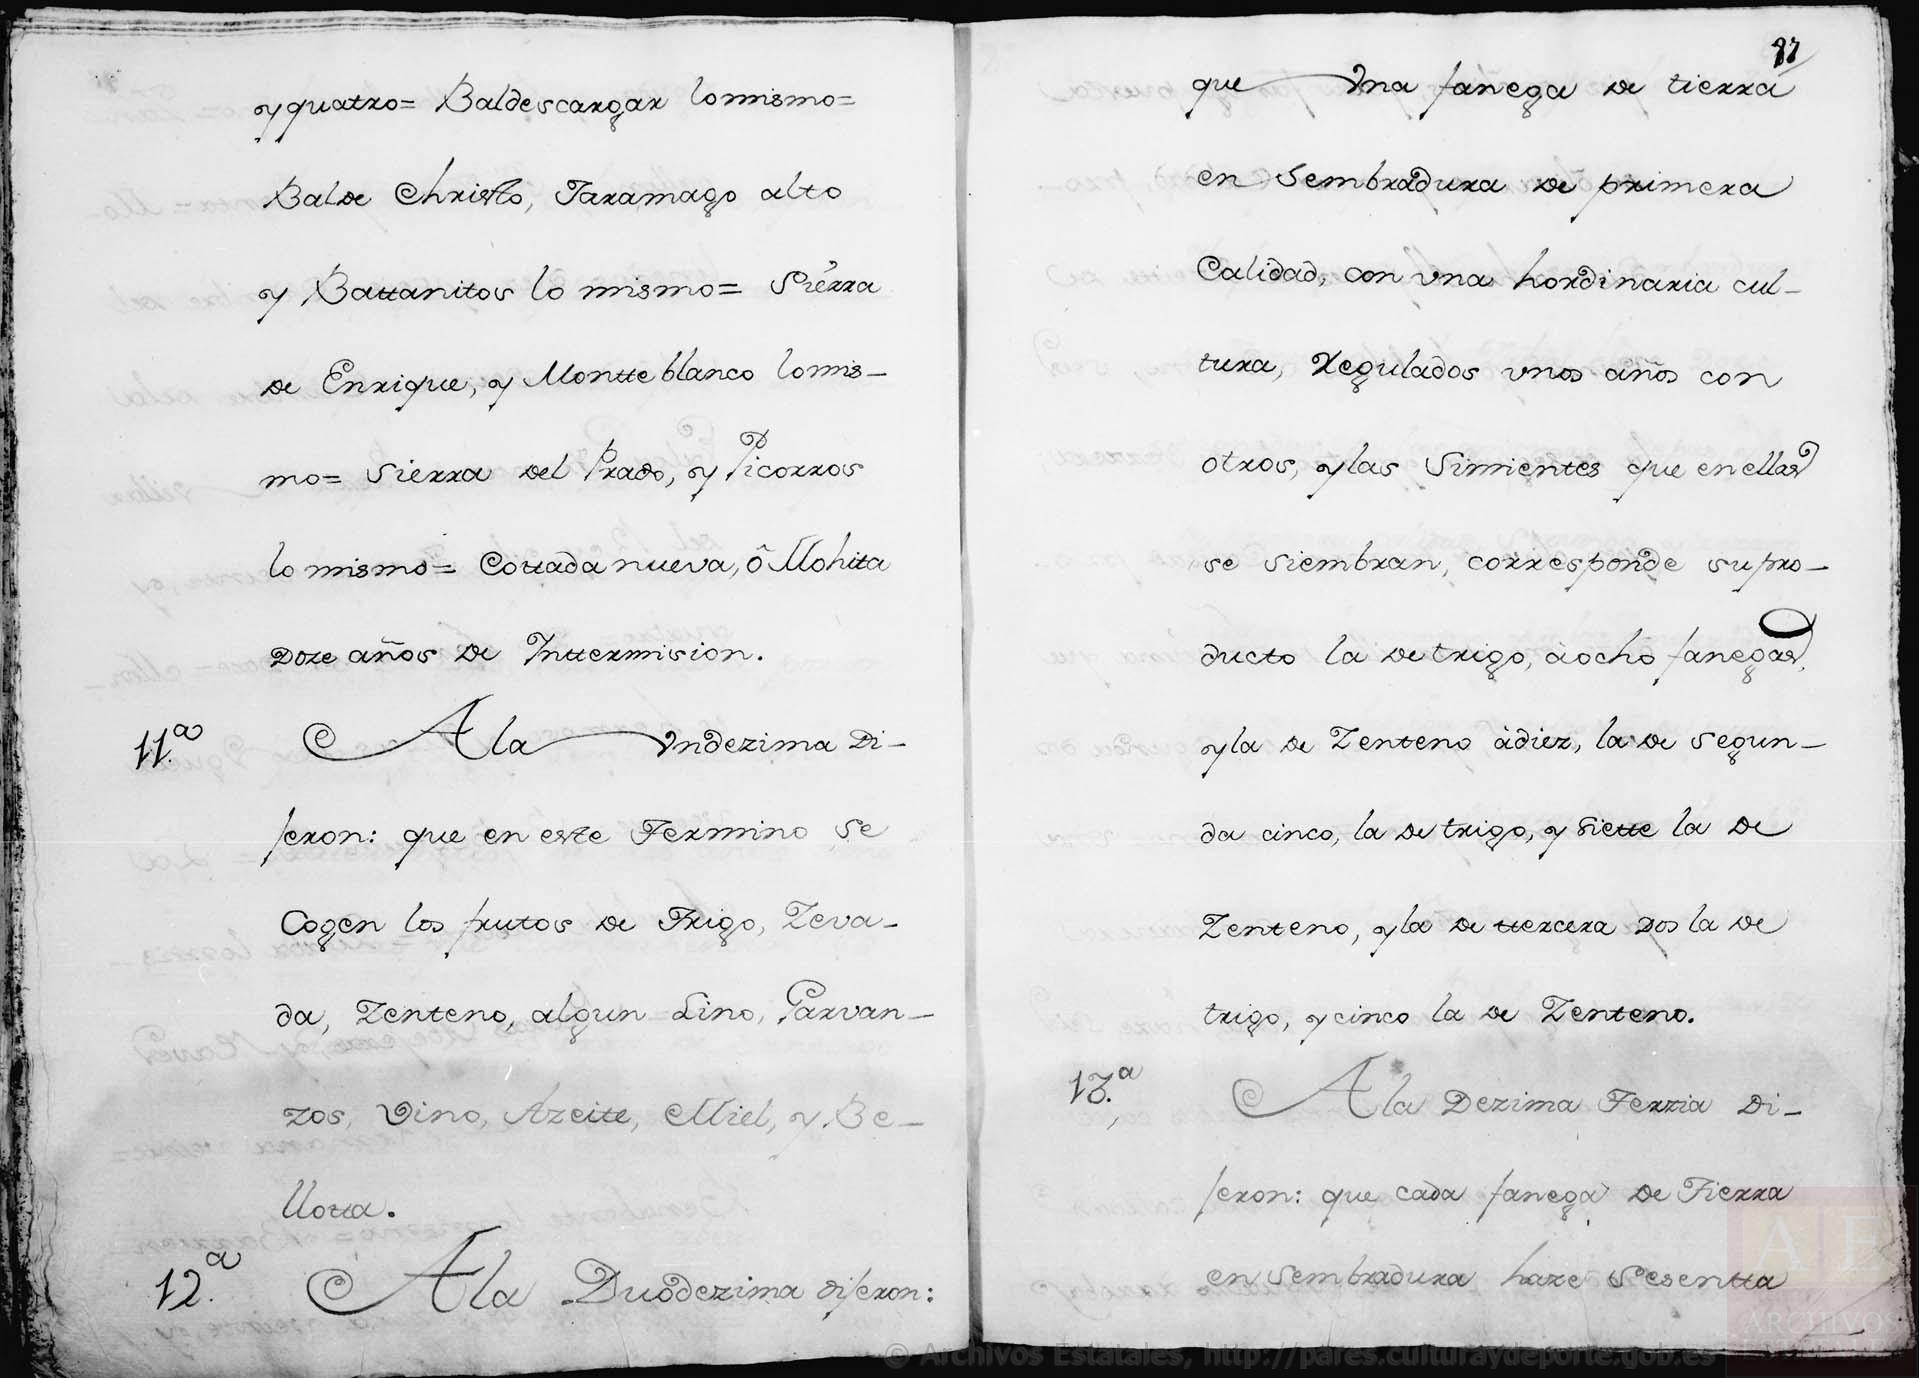 y quatro= Baldescargar lo mismo=
Bal de Christo, Taramago alto
y Battanitos lo mismo= Sierra
de Enrique, y Montte blanco lo mis-
mo= Sierra del Prado, y Picorros
lo mismo= Cottada nueva, ô Mohita
doze años de Inttermision.
11.ª A la Undezima di-
jeron: que en este Termino se
Cogen los frutos de Trigo, Zeva-
da, Zenteno, algun Lino, Garvan-
zos, Vino, Azeitte, Miel, y Be-
llotta.
12.ª A la Duodezima dijeron:
87
que Una fanega de tierra
en Sembradura de primera
Calidad, con vna hordinaria cul-
tura, Regulados vnos años con
otros, y las Simientes que en ellas
se siembran, corresponde su pro-
ducto la de trigo, à ocho fanegas,
y la de Zenteno à diez, la de segun-
da cinco, la de trigo, y siette la de
Zenteno, y la de ttercera dos la de
trigo, y cinco la de Zenteno.
13.ª A la Dezima Terzia di-
jeron: que cada fanega de Tierra
en Sembradura haze Sesentta
© Archivos Estatales, http://pares.culturaydeporte.gob.es
AE
ARCHIVOS
ESTATALES